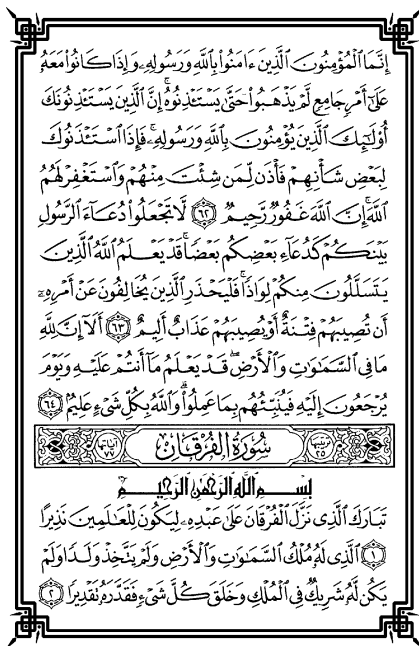 إِنَّمَا ٱلْمُؤْمِنُونَ ٱلَّذِينَ ءَامَنُوا۟ بِٱللَّهِ وَرَسُولِهِۦ وَإِذَا كَانُوا۟ مَعَهُۥ
عَلَىٰٓ أَمْرٍ جَامِعٍ لَّمْ يَذْهَبُوا۟ حَتَّىٰ يَسْتَـْٔذِنُوهُ ۚ إِنَّ ٱلَّذِينَ يَسْتَـْٔذِنُونَكَ
أُو۟لَـٰٓئِكَ ٱلَّذِينَ يُؤْمِنُونَ بِٱللَّهِ وَرَسُولِهِۦ ۚ فَإِذَا ٱسْتَـْٔذَنُوكَ
لِبَعْضِ شَأْنِهِمْ فَأْذَن لِّمَن شِئْتَ مِنْهُمْ وَٱسْتَغْفِرْ لَهُمُ
ٱللَّهَ ۚ إِنَّ ٱللَّهَ غَفُورٌ رَّحِيمٌ ٦٢ لَّا تَجْعَلُوا۟ دُعَآءَ ٱلرَّسُولِ
بَيْنَكُمْ كَدُعَآءِ بَعْضِكُم بَعْضًا ۚ قَدْ يَعْلَمُ ٱللَّهُ ٱلَّذِينَ
يَتَسَلَّلُونَ مِنكُمْ لِوَاذًا ۚ فَلْيَحْذَرِ ٱلَّذِينَ يُخَالِفُونَ عَنْ أَمْرِهِۦٓ
أَن تُصِيبَهُمْ فِتْنَةٌ أَوْ يُصِيبَهُمْ عَذَابٌ أَلِيمٌ ٦٣ أَلَآ إِنَّ لِلَّهِ
مَا فِى ٱلسَّمَـٰوَٰتِ وَٱلْأَرْضِ ۖ قَدْ يَعْلَمُ مَآ أَنتُمْ عَلَيْهِ وَيَوْمَ
يُرْجَعُونَ إِلَيْهِ فَيُنَبِّئُهُم بِمَا عَمِلُوا۟ ۗ وَٱللَّهُ بِكُلِّ شَىْءٍ عَلِيمٌۢ ٦٤
ترتيبها ٢٥ سُورَةُ الْفُرْقَانِ آياتها ٧٧
بِسْمِ ٱللَّهِ ٱلرَّحْمَـٰنِ ٱلرَّحِيمِ
تَبَارَكَ ٱلَّذِى نَزَّلَ ٱلْفُرْقَانَ عَلَىٰ عَبْدِهِۦ لِيَكُونَ لِلْعَـٰلَمِينَ نَذِيرًا
١ ٱلَّذِى لَهُۥ مُلْكُ ٱلسَّمَـٰوَٰتِ وَٱلْأَرْضِ وَلَمْ يَتَّخِذْ وَلَدًا وَلَمْ
يَكُن لَّهُۥ شَرِيكٌ فِى ٱلْمُلْكِ وَخَلَقَ كُلَّ شَىْءٍ فَقَدَّرَهُۥ تَقْدِيرًا ٢